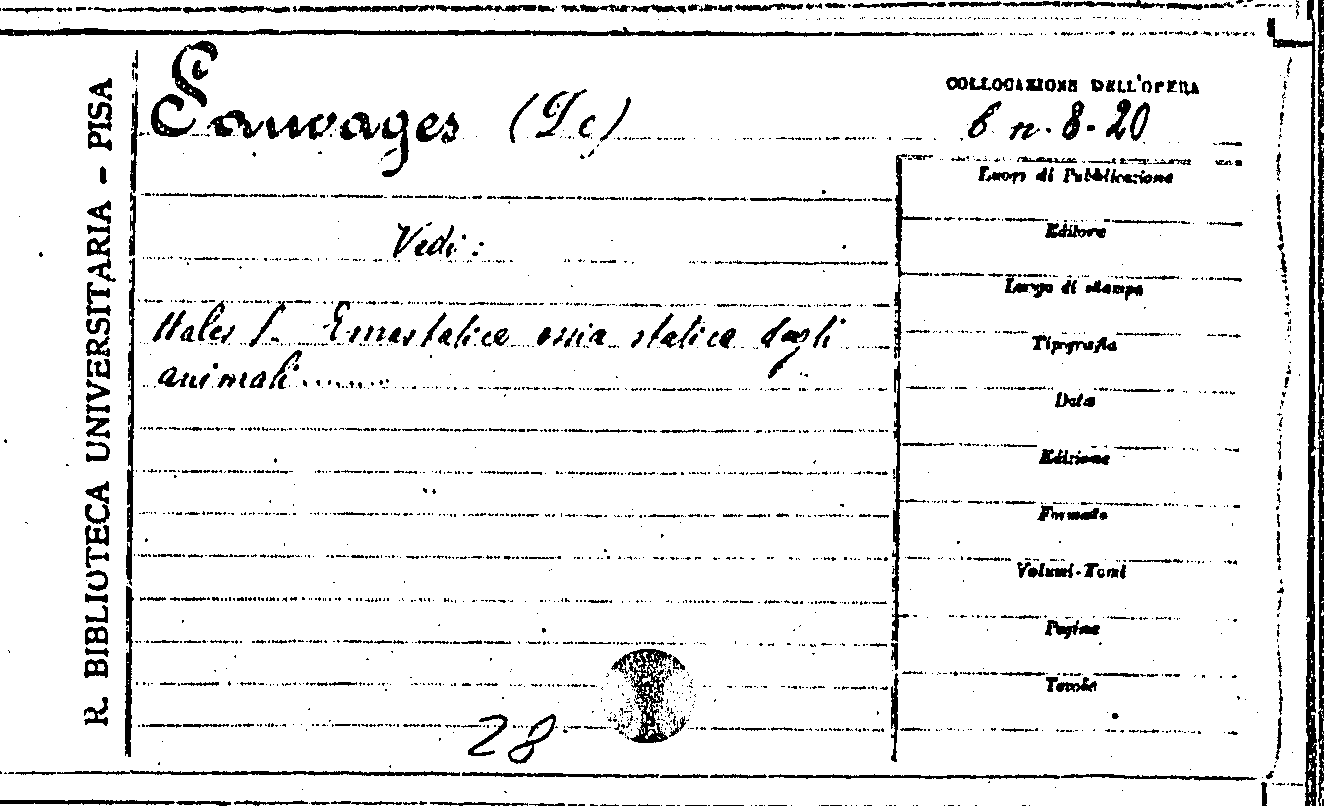 R. BIBLIOTECA UNIVERSITARIA - PISA
Sauvages (De)
COLLOCAZIONE DELL'OPERA
6 n. 8-20
Vedi:
Hales S. Emastatica ossia statica degli
animali......
Luogo di Pubblicazione
Editore
Luogo di stampa
Tipografia
Data
Edizione
Formato
Volumi-Tomi
Pagine
Tavole
28